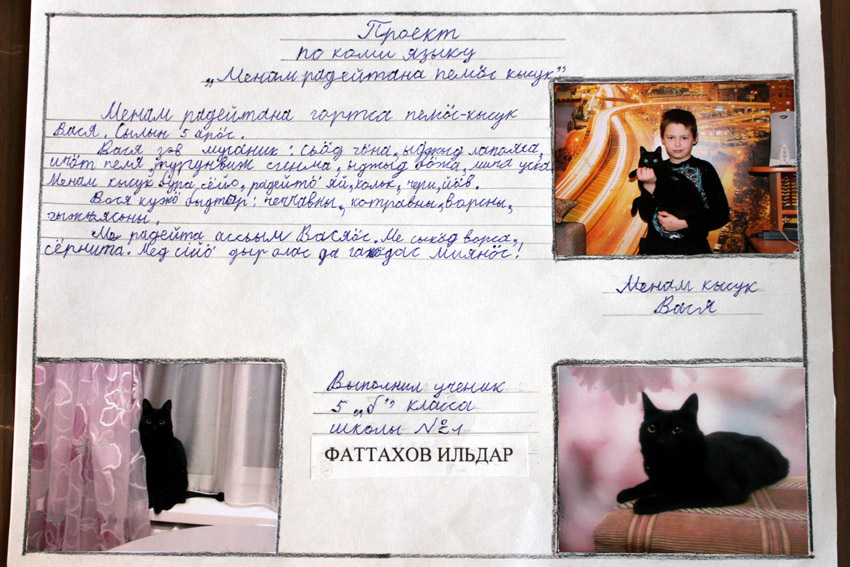 Проект
по коми языку
„Менам радейтана пемӧс кысук”
Менам радейтана гортса пемӧс-кысук
Вася. Сылӧн 5 арӧс.
Вася зэв мичаник: сьӧд гӧна, ыджыд лапаяса,
пеля, турунвиж синма, ыджыд бӧжа, мича уска.
Менам кысук бура сёйӧ, радейтӧ яй, кольк, чери, йӧв.
Вася кужӧ быдтор: чеччавны, котравны, ворсны,
гыжъясьны.
Ме радейта ассьым Васяӧс. Ме сыкӧд ворса,
сёрнита. Мед сійӧ дыр олас да гажӧдас Миянӧс!
Менам кысук
Вася
Выполнил ученик
5 „б” класса
школы №1
ФАТТАХОВ ИЛЬДАР